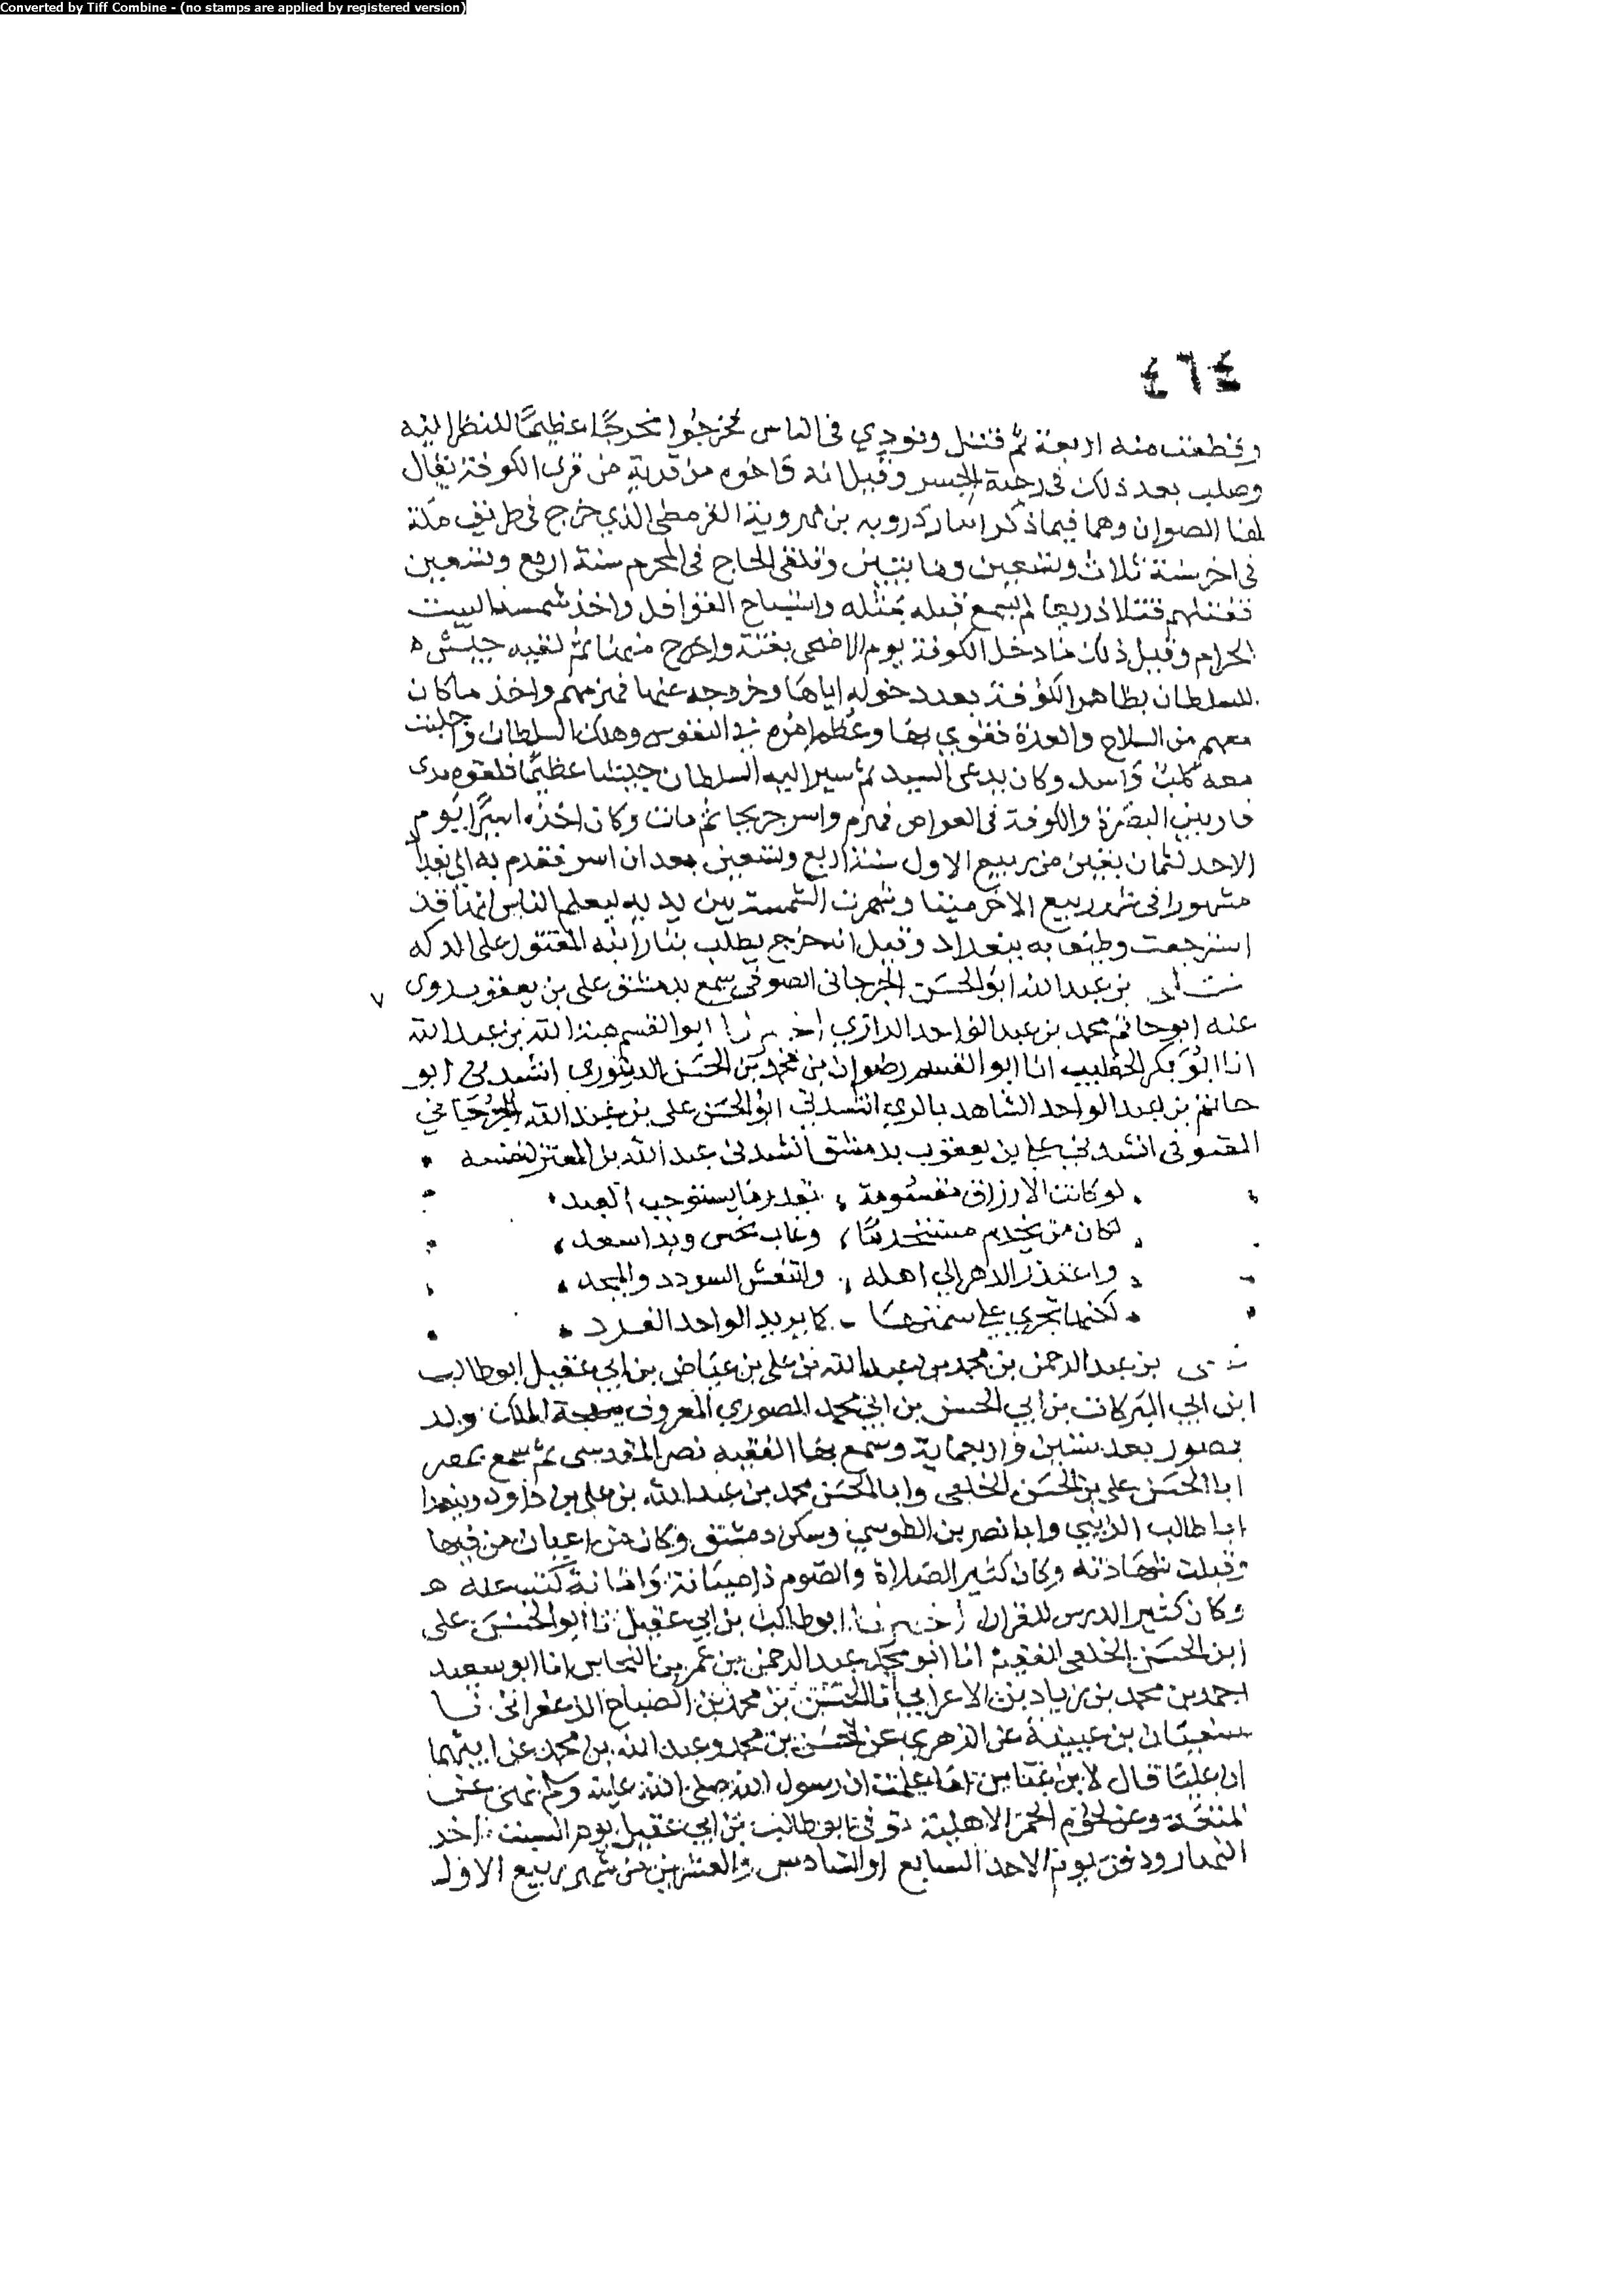 Converted by Tiff Combine - (no stamps are applied by registered version)
٤٦٤
وقطعت منه اربعة ثم قتل ونودي فى الناس فخرجوا مخرجا عظيما للنظر اليه
وصلب بعد ذلك فى رحبة الجسر وقيل انه واخوه من قرية من قرى الكوفة يقال
لها الصوان وهما فيما ذكر ابنا زكرويه بن مهروية القرمطى الذي خرج فى طريق مكة
فى اخر سنة ثلاث وتسعين ومايتين وتلقى الحاج فى المحرم سنة اربع وتسعين
فقتلهم قتلا ذريعا لم يسمع قبله بمثله واستباح القوافل واخذ شمسة البيت
الحرام وقبل ذلك ما دخل الكوفة يوم الاضحى بغتة واخرج منها ثم لقيه جيش ه
للسلطان بظاهر الكوفة بعد دخوله اياها وخروجه عنها فهزمهم واخذ ما كان
معهم من السلاح والعدة فقوي بها وعظم امره فى النفوس وهال السلطان واجلبت
معه كلب واسد وكان يدعى السيد ثم سير اليه السلطان جيشا عظيما فلقوه بذى
قار بين البصرة والكوفة فى العراص فهزم واسر جريحا ثم مات وكان اخذه اسيرا يوم
الاحد لثمان بقين من ربيع الاول سنة اربع وتسعين بعد ان اسر فقدم به الى بغداد
مشهورا فى شهر ربيع الاخر ميتا وشهرت الشمسة بين يديه ليعلم الناس انها قد
استرجعت وطيف به ببغداد وقيل انه خرج يطلب بثار ابنه المقتول على الدكه
بن عبد الله ابو الحسن الجرجانى الصوفى سمع بدمشق على بن يعقوب روى
عنه ابو حاتم محمد بن عبد الواحد الرازي اخبرنا ابو القسم هبة الله بن عبد الله
انا ابو بكر الخطيب انا ابو القسم رضوان بن محمد بن الحسن الدينوري انشدني ابو
حاتم بن عبد الواحد الشاهد بالري انشدني ابو الحسن على بن عبد الله الجرجاني
الصوفى انشدني على بن يعقوب بدمشق انشدنى عبد الله بن المعتز لنفسه
لو كانت الارزاق مقسومة بقدر ما يستوجب العبد
لكان من يخدم مستخدما وغاب نحس وبدا سعد
واعتذر الدهر الى اهله وانتعش السودد والمجد
لكنها تجري على سمتها كما يريد الواحد الفرد
بن عبد الرحمن بن محمد بن عبد الله بن على بن عياض بن ابي عقيل ابو طالب
ابن ابي البركات بن ابي الحسن بن ابي محمد الصوري المعروف ببهجة الملك ولد
بصور بعد ستين واربعماية وسمع بها الفقيه نصر المقدسى ثم سمع بمصر
ابا الحسن على بن الحسن الخلعى وابا الحسن محمد بن عبد الله بن على بن داود وببغداد
ابا طالب الزينبي وابا نصر بن الطوسي وسكن دمشق وكان من اعيان من فيها
وقبلت شهادته وكان كثير الصلاة والصوم ذا صيانة وامانة كتبت عنه ه
وكان كثير الدرس للقران اخبرنا ابو طالب بن ابي عقيل نا ابو الحسن على
ابن الحسن الخلعى الفقيه انا ابو محمد عبد الرحمن بن عمر بن النحاس انا ابو سعيد
احمد بن محمد بن زياد بن الاعرابي نا الحسن بن محمد بن الصباح الزعفرانى نا
سفيان بن عيينة عن الزهري عن الحسن بن محمد وعبد الله بن محمد عن ابيهما
ان عليا قال لابن عباس اما علمت ان رسول الله صلى الله عليه وسلم نهى عن
المتعة وعن لحوم الحمر الاهلية توفى ابو طالب بن ابي عقيل يوم السبت اخر
النهار ودفن يوم الاحد السابع او السادس والعشرين من شهر ربيع الاول